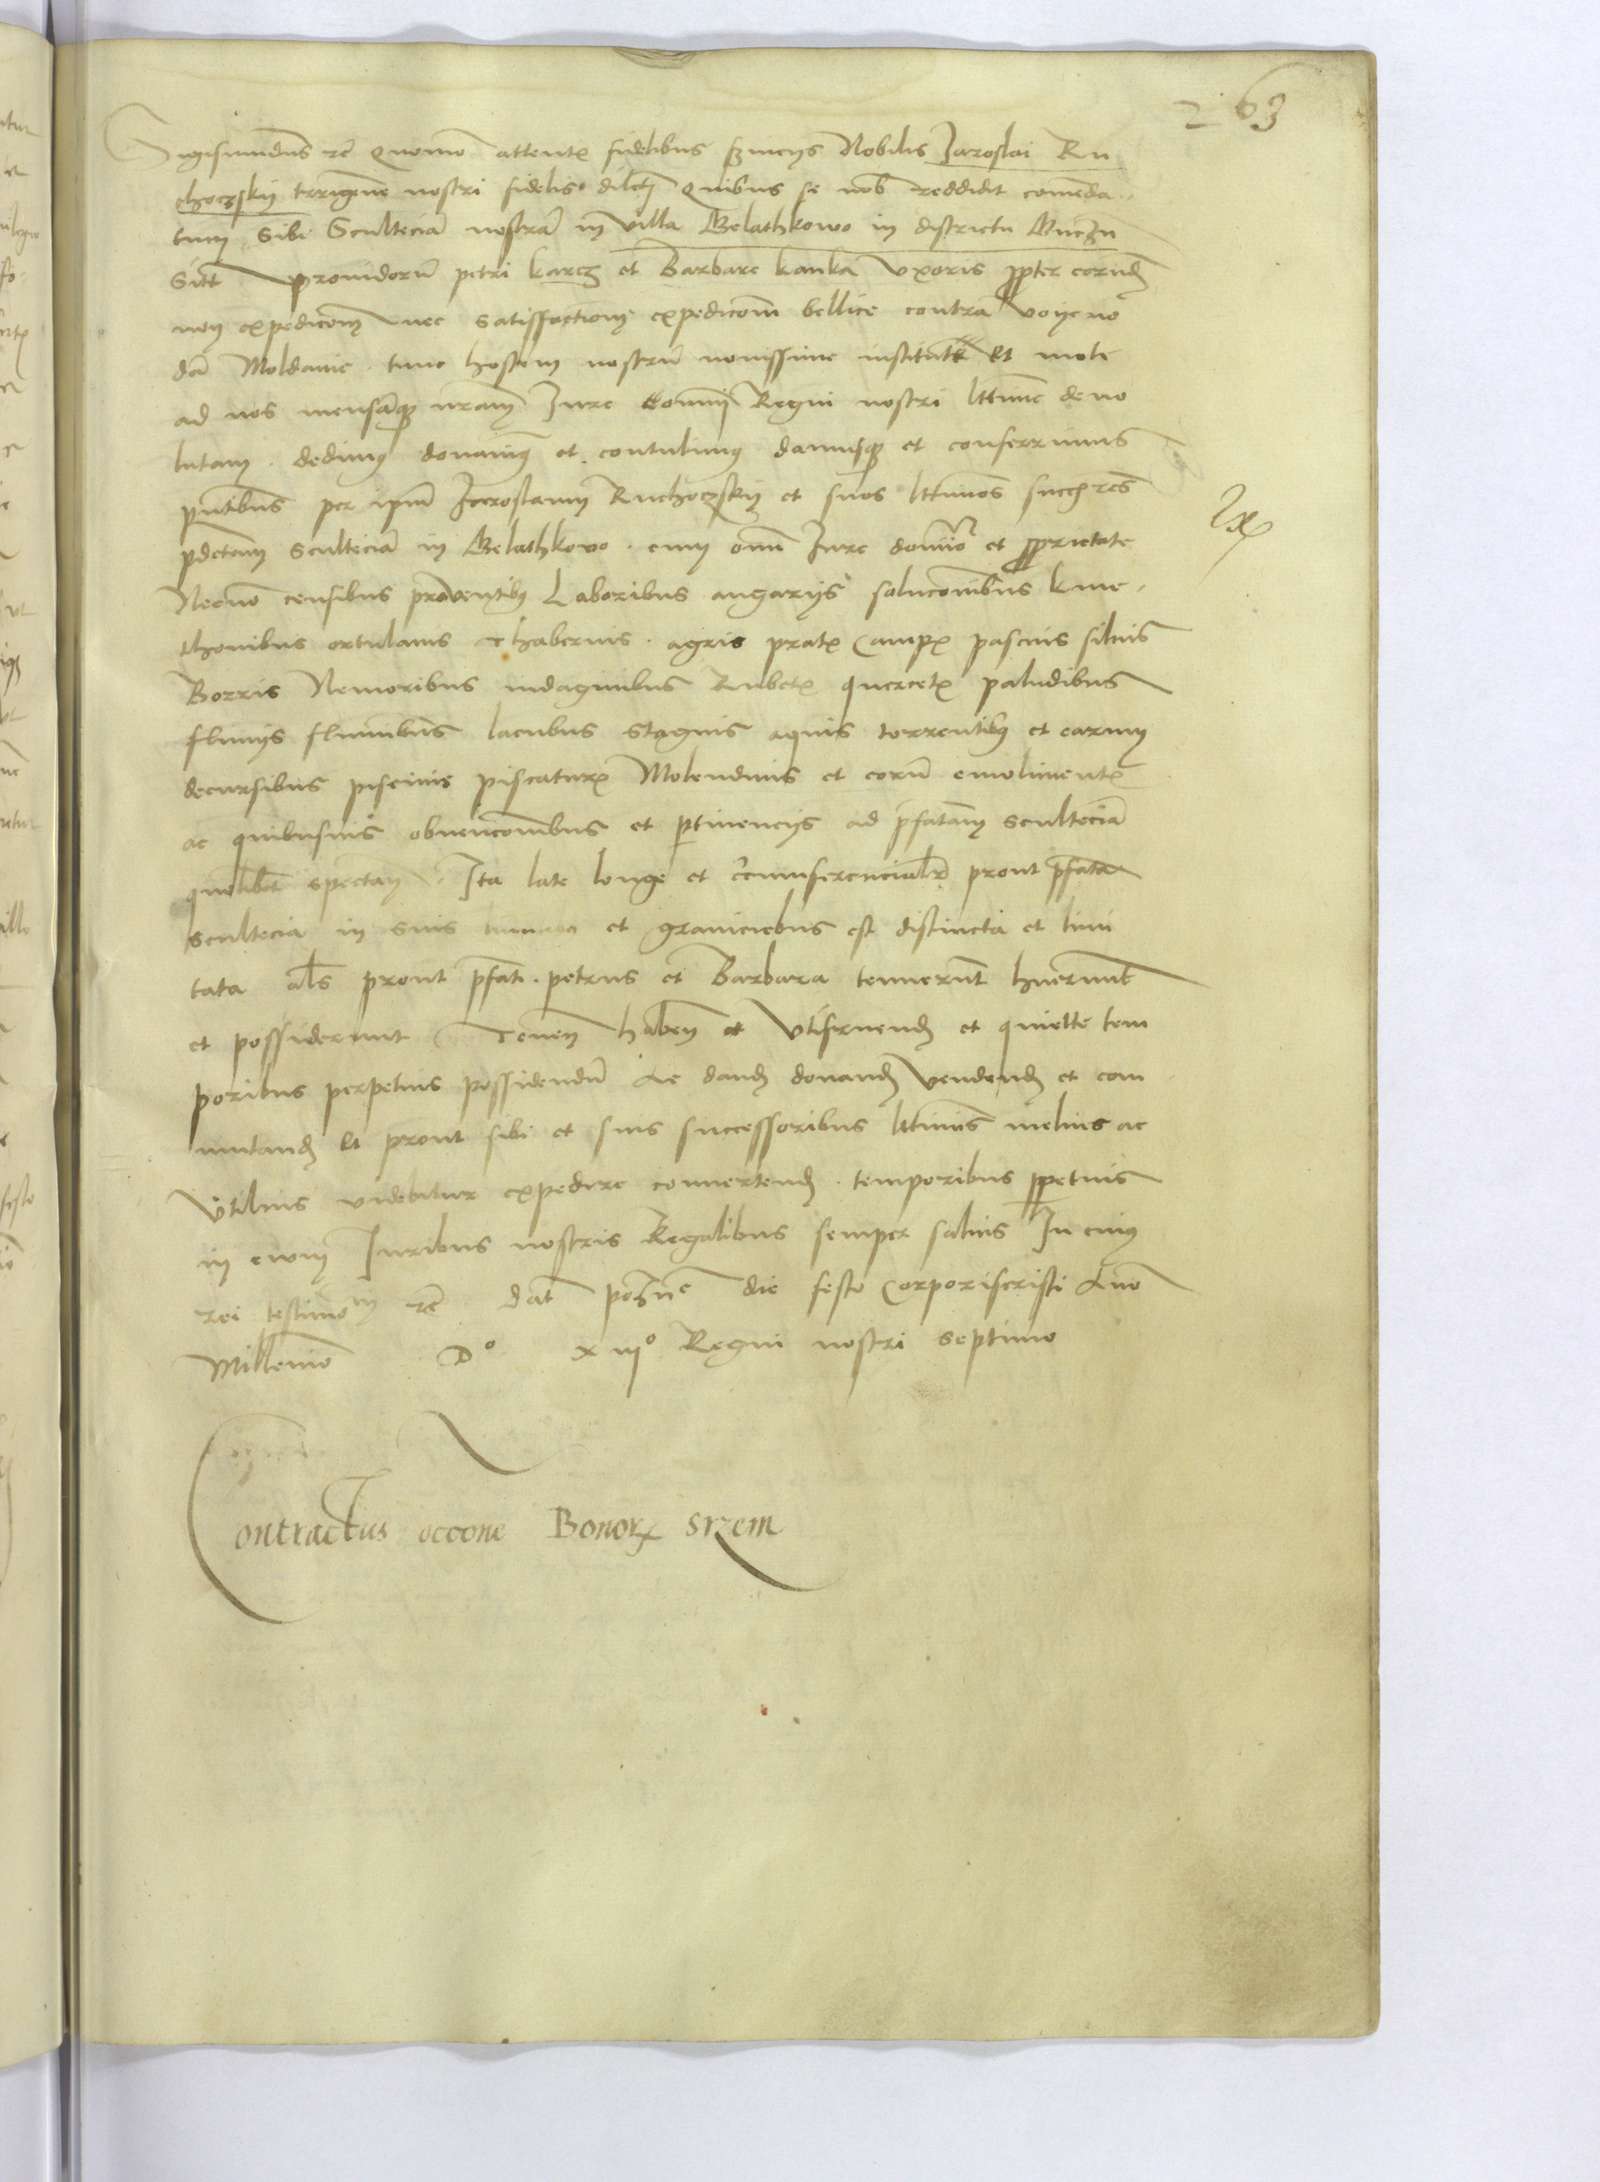 263
Sigismundus etc Quomo attentis fidelibus serviciis Nobilis Jaroslai Ru
choczskij terrigene nostri fidelis dilecti Quibus se nob reddidit comenda
tum sibi Scultecia nostra in villa Belathkowo in districtu
Sitt providoru petri karcz et Barbare kanka uxoris propter eorund
non expedicom nec satisffactione expedicom bellice contra voijevo
da Moldavie tunc hostem nostru novissime institute et mote
ad nos mensaq nram Jure comuni Regni nostri lttime devo
lutam dedimus donavimus et contulimus damusq et conferrimus
pntibus per ipm Jaroslaum Ruchoczskij et suos lttimos succes res
pdctam scultecia in Belathkowo cum omi Jure domio et proprietate
Necno censibus proventibus Laboribus angariis solucombus kme
thonibus ortulanis thabernis agris pratis campis pascuis silvis
Borris Nemoribus indaginibus Rubetis quercetis paludibus
fluviis fluminibus lacubus stagnis aquis torrentibus et earum
decursibus piscinis piscaturis Molendinis et eoru emolimentis
ac quibusvis obvencombus et ptinenciis ad pfatam scultecia
quolibet spectan Ita late longe et circumferencialr prout pfata
scultecia in suis et graniciebus est distincta et limi
tata als prout pfati petrus et Barbara tenuerunt huerunt
et possiderunt Tenen haben et utifruend et quiette tem
poribus perpetuis possidendu Ac dand donand vendend et com
mutand Et prout sibi et suis successoribus lttimis melius ac
Utilius videbitur expedire convertend temporibus ppetuis
in evum Juribus nostris Regalibus semper salvis In cuius
rei testimo m etc dat pozne die festo Corporiscristi Anno
Millenio Do x iijo Regni nostri septimo
Contractus occone Bonorum srzem